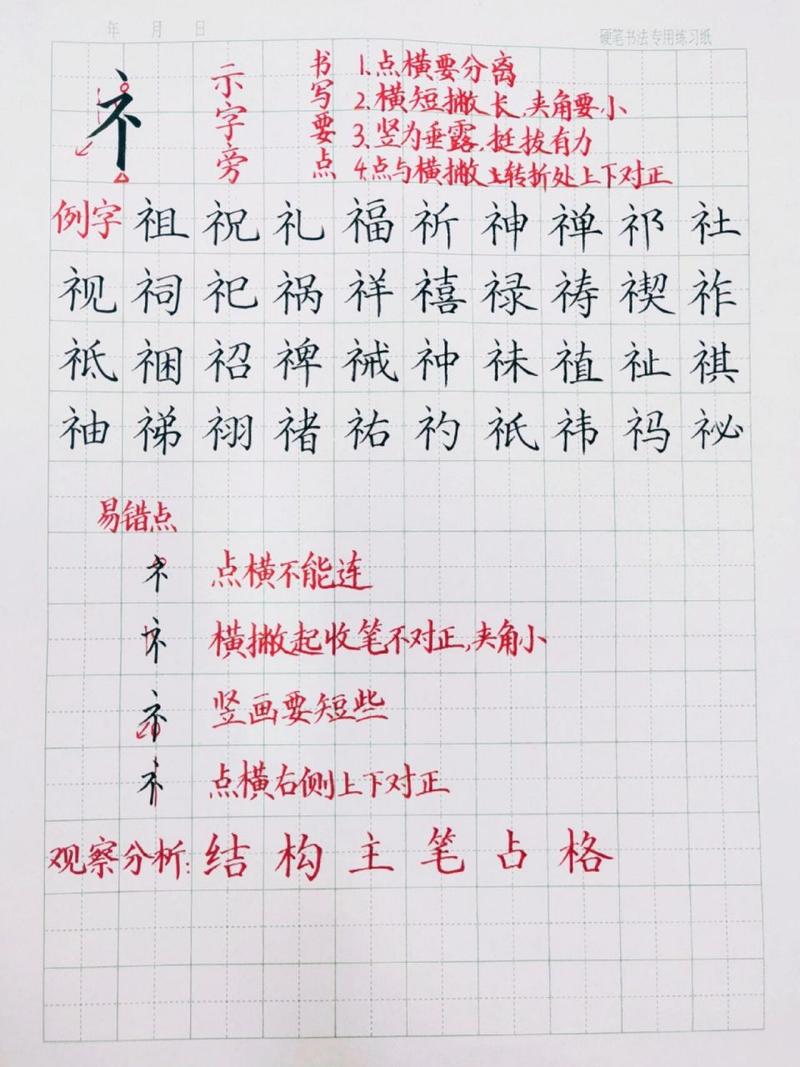 年 月 日
硬笔书法专用练习纸
礻
示字旁
书写要点
1.点横要分离
2.横短撇长,夹角要小
3.竖为垂露,挺拔有力
4.点与横撇上转折处上下对正
例字 祖 祝 礼 福 祈 神 禅 祁 社
视 祠 祀 祸 祥 禧 禄 祷 禊 祚
祗 祵 祒 禆 祴 祌 祙 禃 祉 祺
䄂 䄺 祤 禇 祐 礿 祇 祎 祃 祕
易错点
礻 点横不能连
礻 横撇起收笔不对正,夹角小
礻 竖画要短些
礻 点横右侧上下对正
观察分析: 结构主笔占格